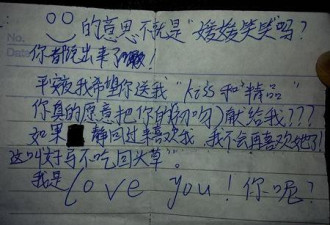 No.
Date
的意思不就是"媛媛笑笑"吗?
你都说出来了啊!
平安夜我希望你送我"kiss和精品"
你真的愿意把你的初吻)献给我???
如果 静回过来喜欢我,我不会再喜欢她了
这叫好马不吃回头草"。
我是Love you!你呢?